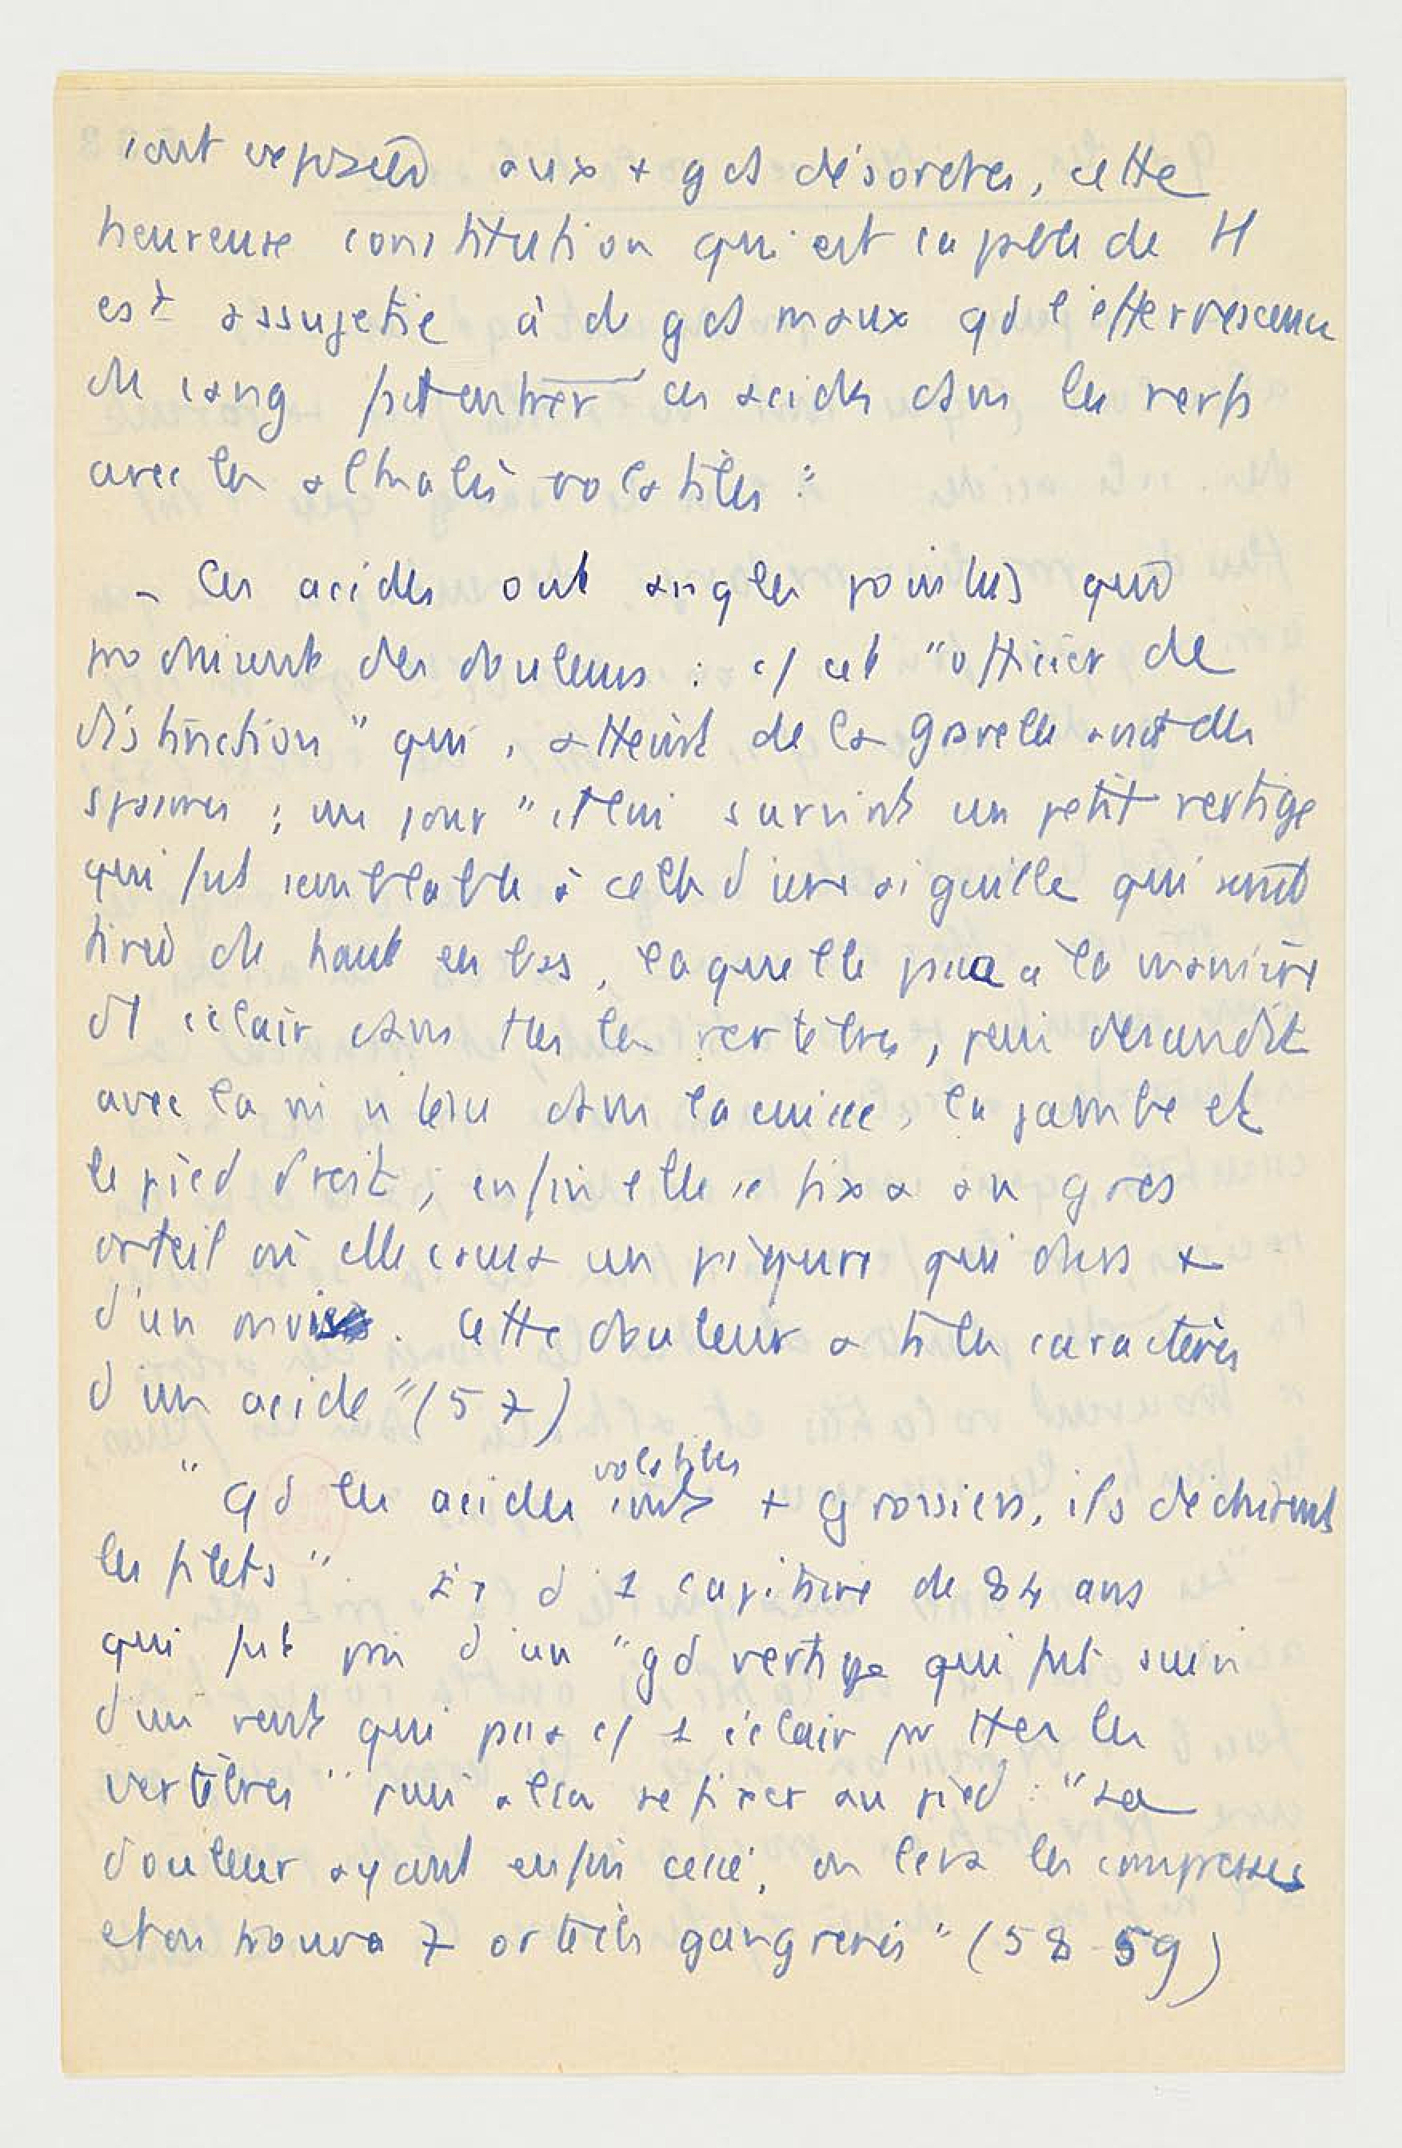 sont exposés aux + gds désordres, cette
heureuse constitution qui est capable de tt
est assujetie à de gds maux qd l'effervescence
du sang fait entrer ces acides dans les nerfs
avec les alkalis volatiles"
- Ces acides ont angles pointus qui
produisent des douleurs : cf cet "officier de
distinction" qui, atteint de la gravelle avait des
spasmes ; un jour "il lui survint un petit vertige
qui fut semblable à celle d'une aiguille qui serait
tirée de haut en bas, laquelle passa à la manière
d'1 éclair dans ttes les vertèbres, puis descendit
avec la violence dans la cuisse, la jambe et
le pied droit ; enfin elle se fixa au gros
orteil où elle causa un piqure qui dura +
d'un mois. Cette douleur a ts les caractères
d'un acide" (57)
"Qd les acides volatiles sont + grossiers, ils déchirent
les filets". Ex d'1 capitaine de 84 ans
qui fut pris d'un "gd vertige qui fut suivi
d'un vent qui passa cf 1 éclair pr ttes les
vertèbres" puis alla se fixer au pied : "La
douleur ayant enfin cessé, on leva les compresses
et on trouva 7 orteils gangrenés" (58-59)